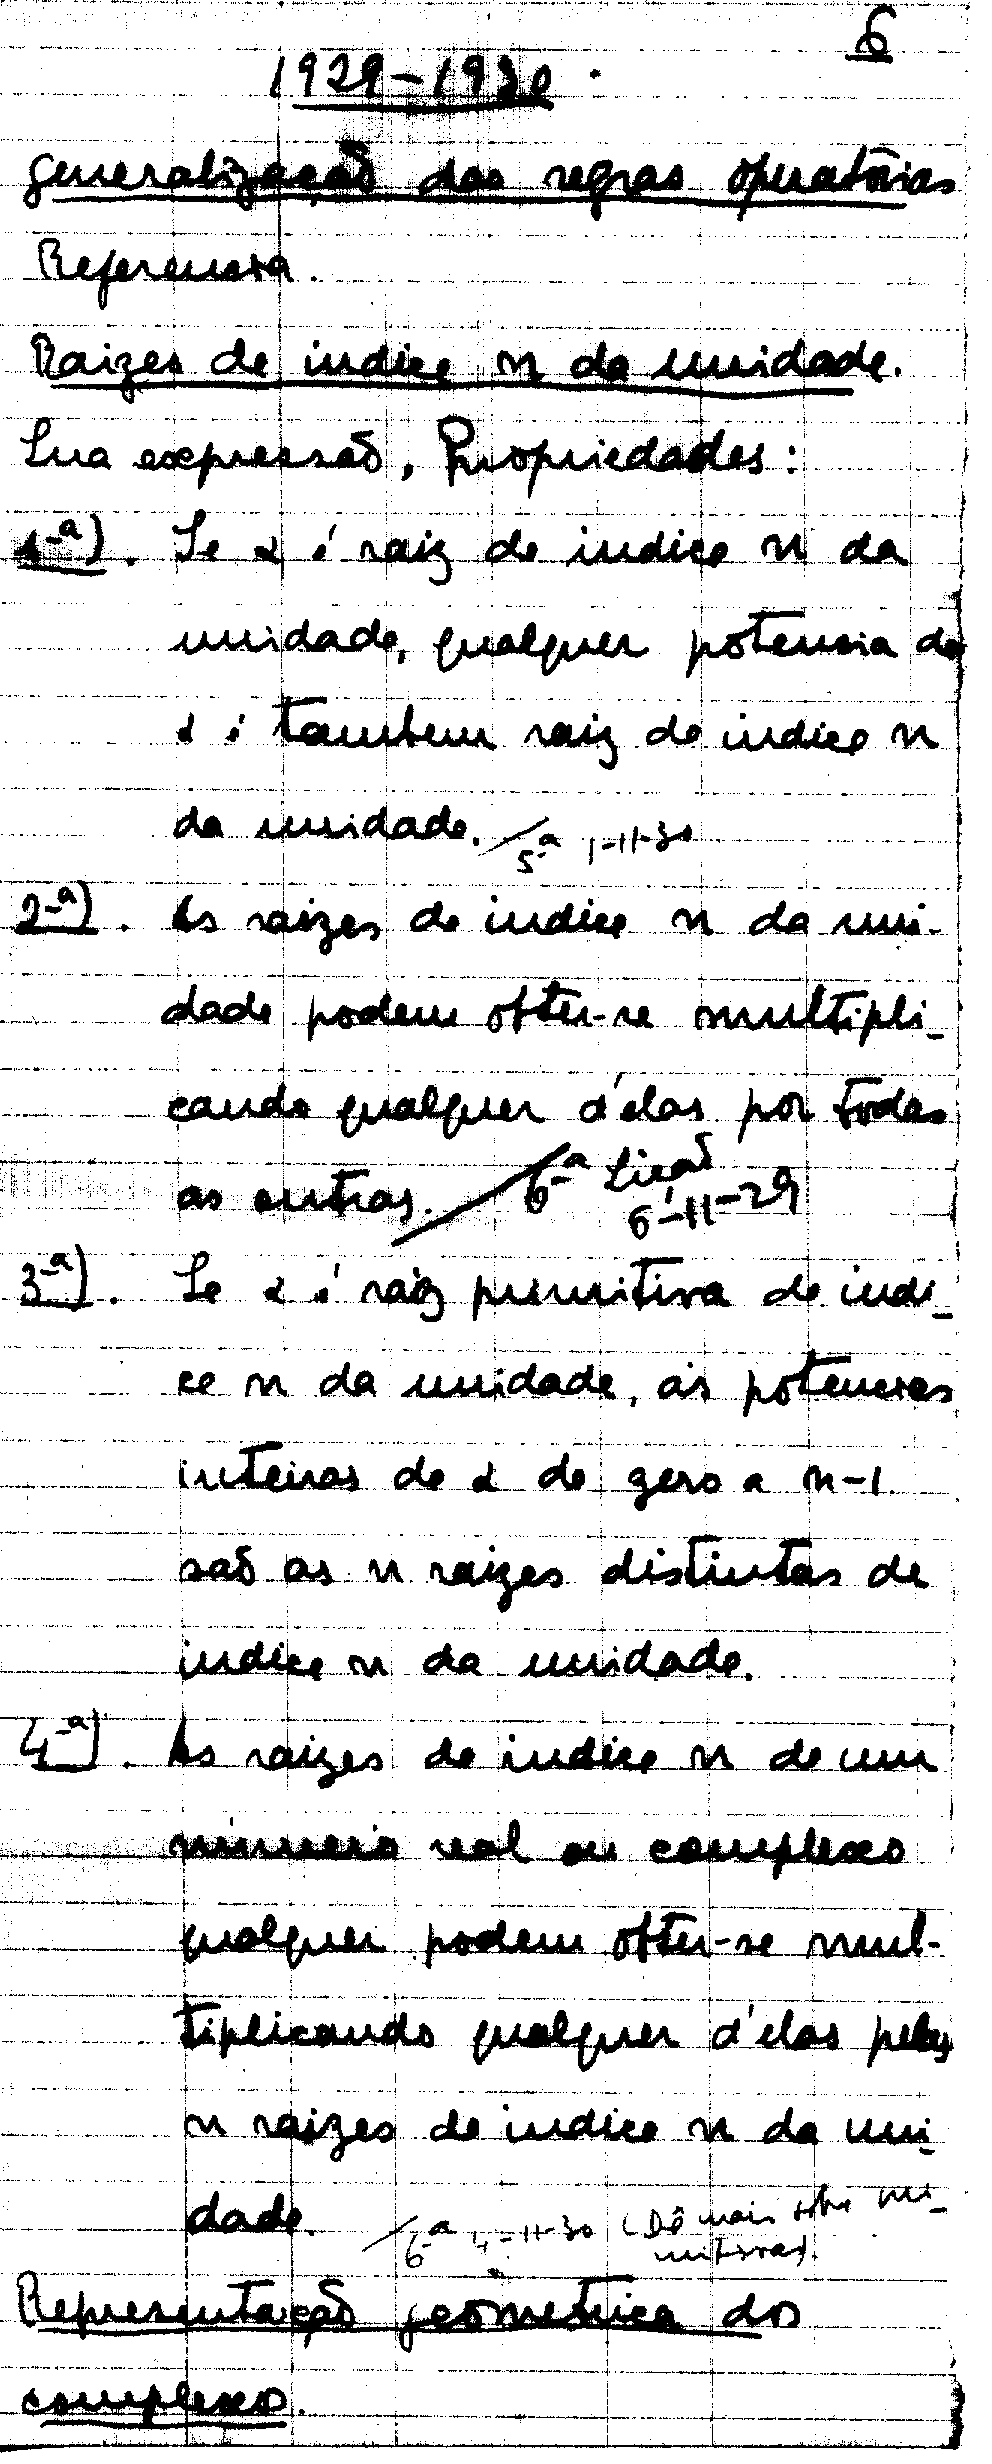 6
1929-1930.
Generalização das regras operatórias
Referencia.
Raizes de indice n da unidade.
Sua expressão, Propriedades:
1-a). Se α é raiz de indice n da
unidade, qualquer potencia de
α é tambem raiz de indice n
da unidade. 5-a 1-11-30
2-a). As raizes de indice n da uni-
dade podem obter-se multipli-
cando qualquer d'elas por todas
as outras. 6-a Lição
6-11-29
3-a). Se α é raiz primitiva de indi-
ce n da unidade, as potencias
inteiras de α de zero a n-1
são as n raizes distintas de
indice n da unidade.
4-a). As raizes de indice n de um
número real ou complexo
qualquer podem obter-se mul-
tiplicando qualquer d'elas pelas
n raizes de indice n da uni-
dade. 6-a 4-11-30 (Dê mais sobre pri-
mitivas).
Representação geometrica do
complexo.